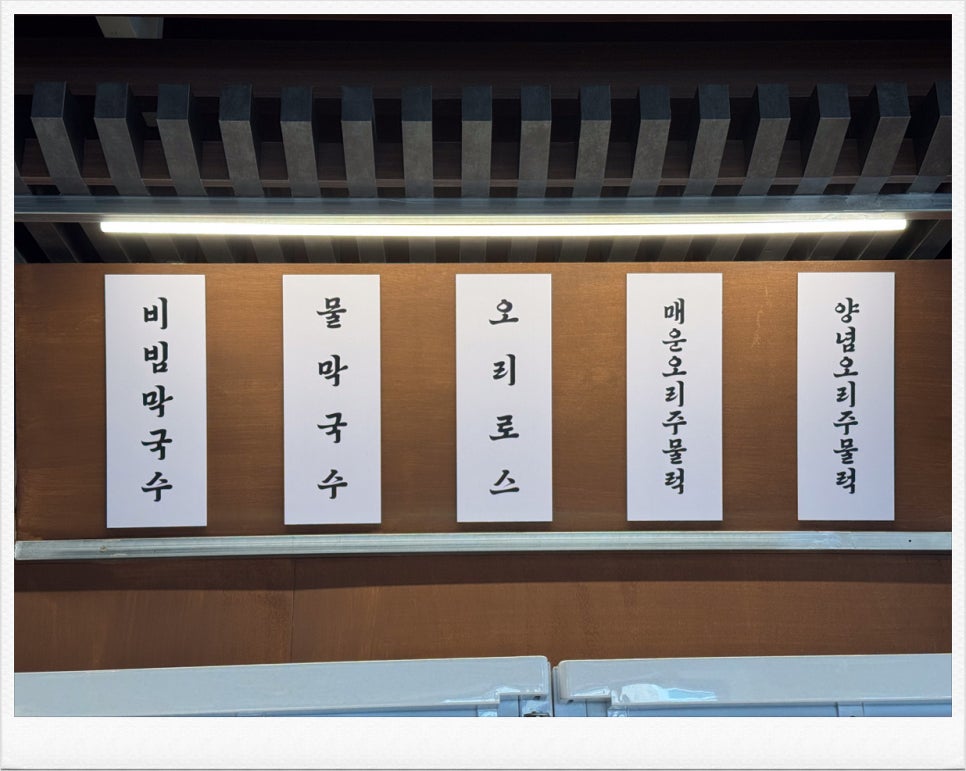 비빔막국수
물막국수
오리로스
매운오리주물럭
양념오리주물럭